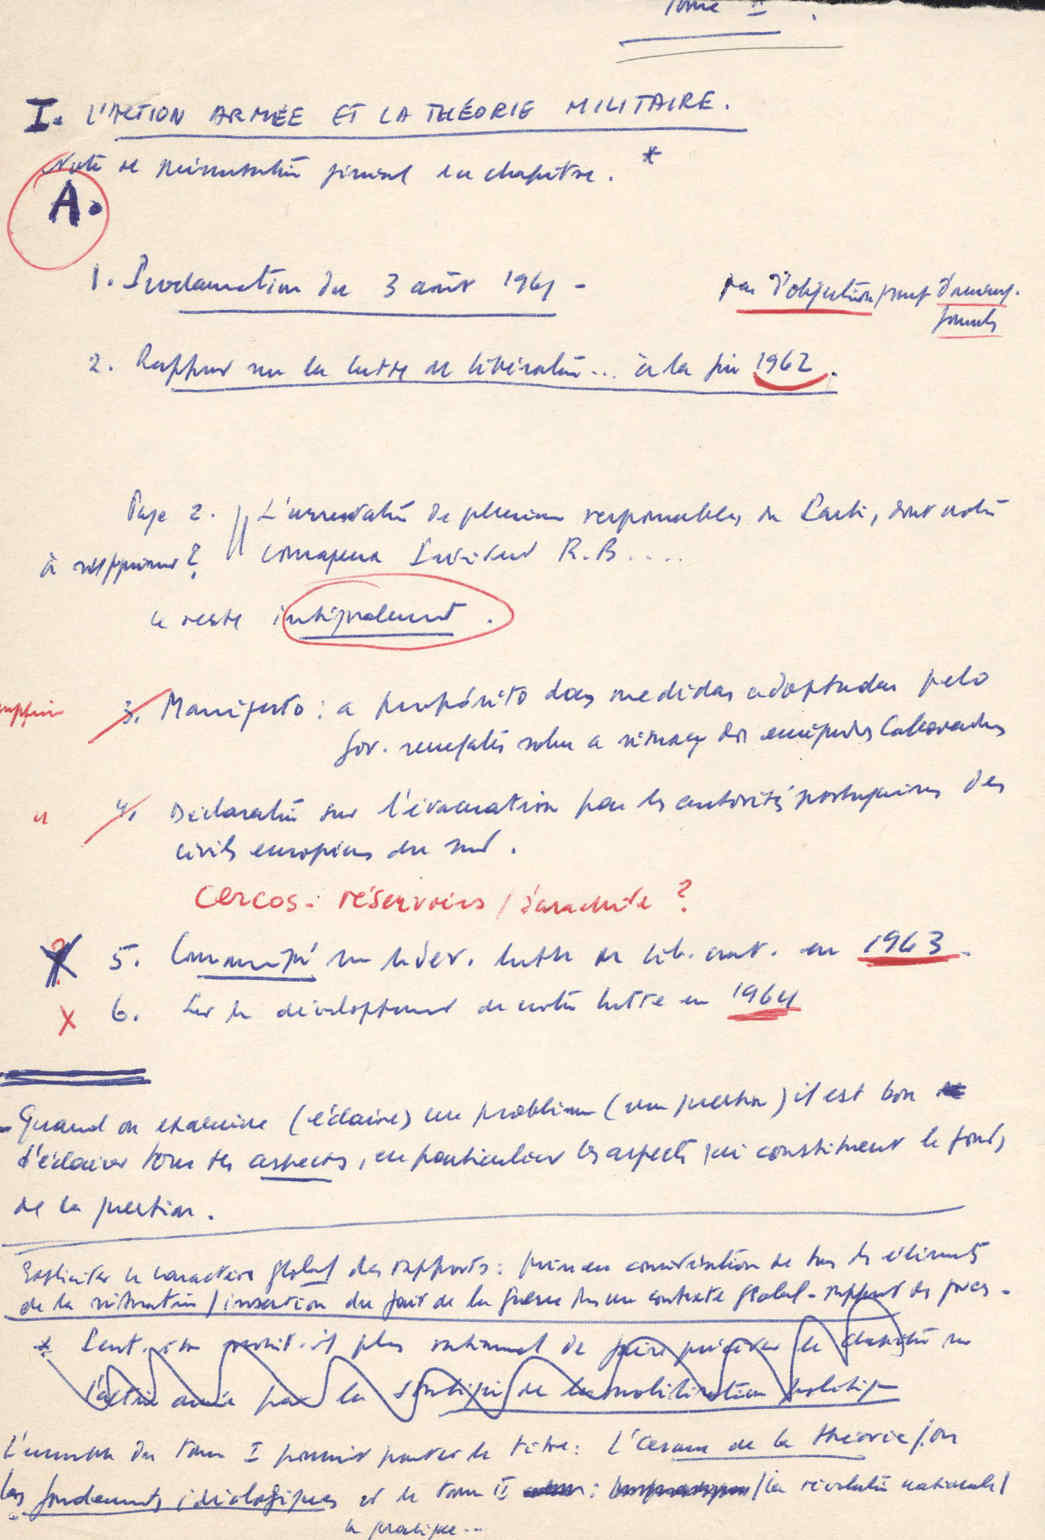 Tome II.
I. L'ACTION ARMÉE ET LA THÉORIE MILITAIRE.
Note de présentation général du chapitre. *
A.
1. Proclamation du 3 août 1961 -
pas d'objection
2. Rapport sur la lutte de libération... à la fin 1962.
Page 2. L'arrestation de plusieurs responsables du Parti, dont notre
à supprimer? camarade R.B....
le reste intégralement.
3. Manifesto: a propósito das medidas adoptadas pelo
gov.
4. Déclaration sur l'évacuation par les autorités portugaises des
civils européens du sud.
Cercos: réservoirs / ?
5. lutte de lib. nat. en 1963.
X 6. Sur le développement de notre lutte en 1964
- Quand on examine (éclaire) un problème (une question) il est bon
d'éclairer tous ses aspects, en particulier les aspects qui constituent le fond
de la question.
Expliciter le caractère global des rapports: prise en considération de tous les éléments
de la situation / insertion du fait de la guerre dans un contexte global - rapport des forces.
* Peut-être serait-il plus rationnel de faire précéder le chapitre sur
l'action armée par la de la mobilisation politique
L'ensemble du tome I pourrait porter le titre: L'arme de la théorie / ou
les fondements idéologiques et le tome II : / la révolution nationale /
la pratique...